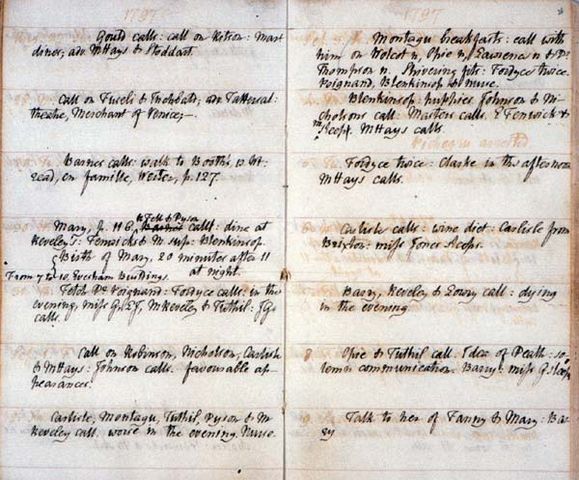 1797
Gould calls: call on Robson: Mart
diner, adv. MHays & Stoddart
Call on Fuseli & Inchbald, adv. Tattersal:
theatre, Merchant of Venice,—
Barnes calls: walk to Booth's, w. Wt.
read, en famille, Werter, p. 127.
Mary, p. 116, Fell & Dyson call: dine at
Reveley's: Fenwicks & M. sup: Blenkinsop.
Birth of Mary, 20 minutes after 11
at night.
From 7 to 10, Evesham Buildings.
Fetch Dr Poignard: Fordyce calls: in the
evening, miss G & LJ, M Reveley & Tuthil:
calls.
Call on Robinson, Nicholson, Carlisle
& MHays: Johnson calls. favourable ap
pearances.
Carlisle, Montagu, Tuthil, Dyson & M
Reveley call. worse in the evening. Nurse.
1797
Montagu breakfasts: call with
him on Wolcot n, Opie n, Lawrence n & Dr
Thompson n. Shivering fits: Fordyce twice.
Poignard, Blenkinsop & nurse.
Blenkinsop: puppies. Johnson & Ni
cholson call: Masters calls. E Fenwick &
M sleep. MHays calls.
Pichegru arrested
Fordyce twice: Clarke in the afternoon
MHays calls.
Carlisle calls: wine diet: Carlisle from
Brixton: miss Jones sleeps.
Barry, Reveley & Lowry call: dying
in the evening
Opie & Tuthil call. Idea of Death: so-
lemn communication. Barry: miss G sleeps
Talk to her of Fanny & Mary: Bar
ry